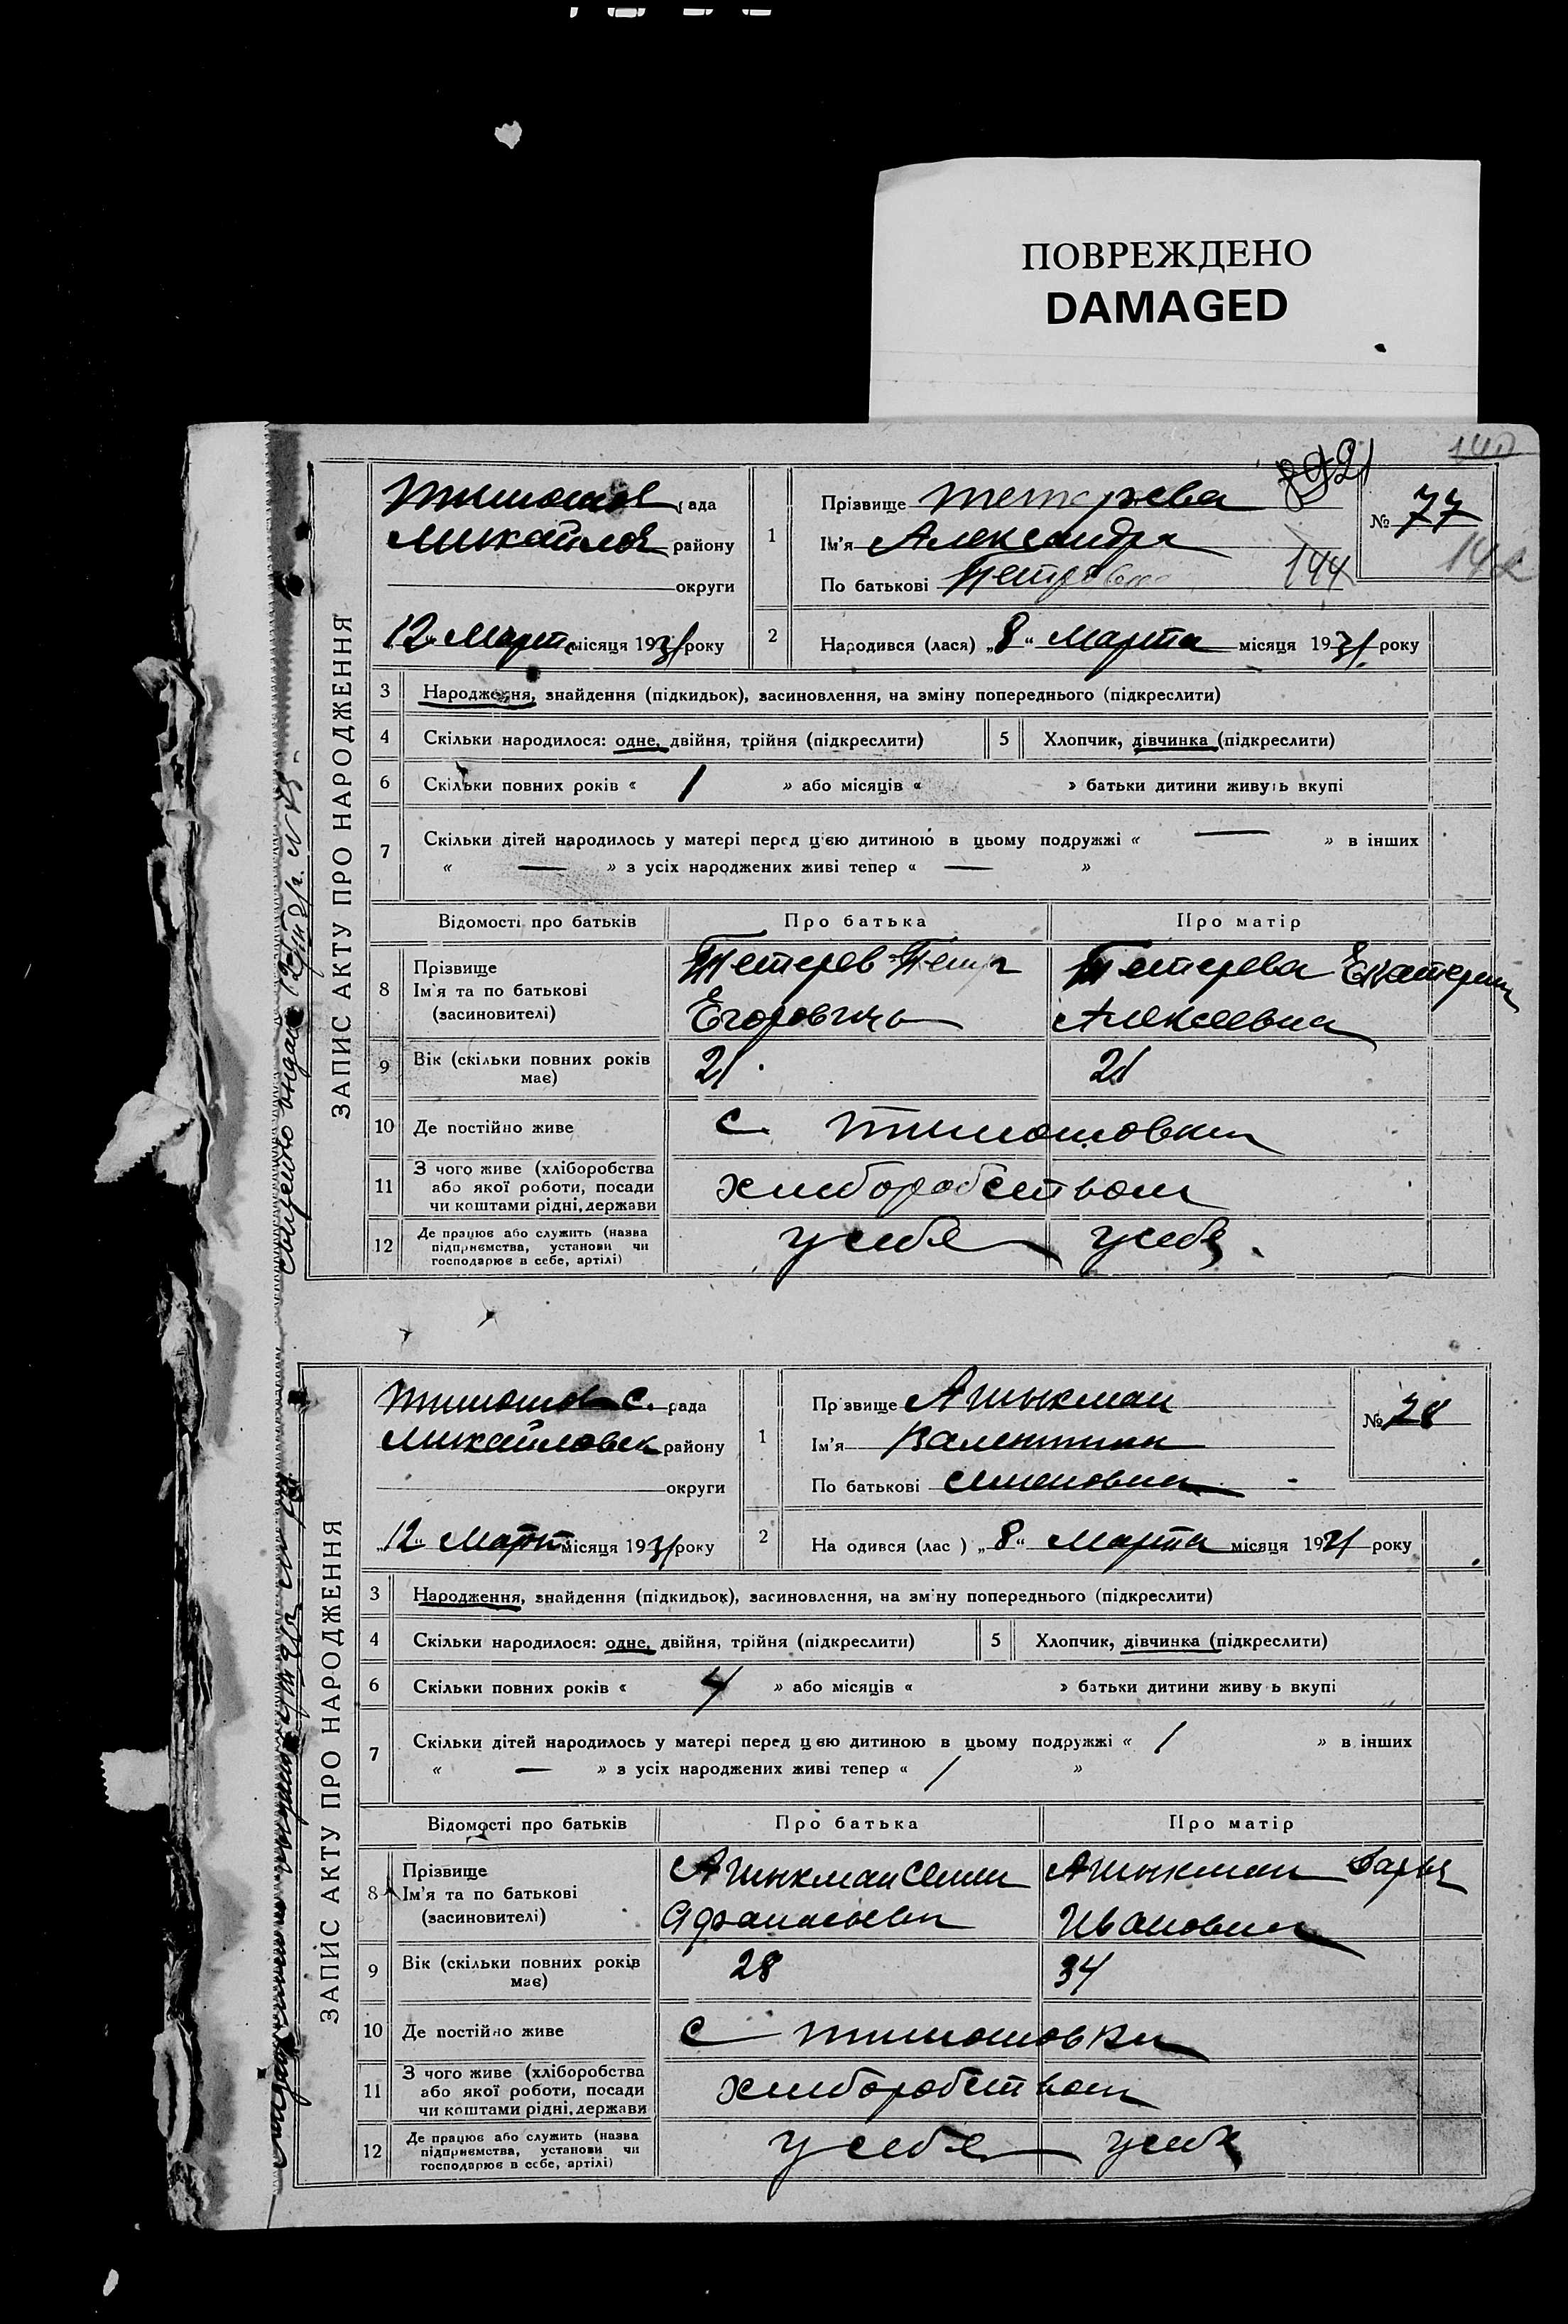 ПОВРЕЖДЕНО
DAMAGED
ЗАПИС АКТУ ПРО НАРОДЖЕННЯ
Тимошов рада
Михайлов району
округи
„12“ Март місяця 1931 року
1
Прізвище Тетерева
Ім'я Александра
По батькові Петровна
144
№ 77
2 Народився (лася) „8“ Марта місяця 1931 року
3 Народження, знайдення (підкидьок), засиновлення, на зміну попереднього (підкреслити)
4 Скільки народилося: одне, двійня, трійня (підкреслити) 5 Хлопчик, дівчинка (підкреслити)
6 Скільки повних років « 1 » або місяців « » батьки дитини живуть вкупі
7 Скільки дітей народилось у матері перед цією дитиною в цьому подружжі « — » в інших
« — » з усіх народжених живі тепер « — »
Відомості про батьків Про батька Про матір
8 Прізвище
Ім'я та по батькові
(засиновителі)
Тетерев Петр
Егоровичь
Тетерева Екатерина
Алексеевна
9 Вік (скільки повних років має) 21 21
10 Де постійно живе с. Тимошовки
11 З чого живе (хліборобства
або якої роботи, посади
чи коштами рідні, держави
хлиборобством
12 Де працює або служить (назва
підприємства, установи чи
господарює в себе, артілі)
у себя у себя
ЗАПИС АКТУ ПРО НАРОДЖЕННЯ
Тимошов с. рада
Михайловск району
округи
„12“ Март місяця 1931 року
1
Пр звище Ашыкман
Ім'я Валентина
По батькові Семеновна
№ 78
2 На одився (лас ) „8“ Марта місяця 1931 року
3 Народження, знайдення (підкидьок), засиновлення, на зм ну попереднього (підкреслити)
4 Скільки народилося: одне, двійня, трійня (підкреслити) 5 Хлопчик, дівчинка (підкреслити)
6 Скільки повних років « 4 » або місяців « » батьки дитини живу ь вкупі
7 Скільки дітей народилось у матері перед цею дитиною в цьому подружжі « 1 » в інших
« — » з усіх народжених живі тепер « 1 »
Відомості про батьків Про батька Про матір
8 Прізвище
Ім'я та по батькові
(засиновителі)
Ашыкман Семен
Афанасьевич
Ашыкман Дарья
Ивановна
9 Вік (скільки повних років має) 28 34
10 Де постійно живе с Тимошовки
11 З чого живе (хліборобства
або якої роботи, посади
чи коштами рідні, держави
хлиборобством
12 Де працює або служить (назва
підприємства, установи чи
господарює в себе, артілі)
у себя у себя